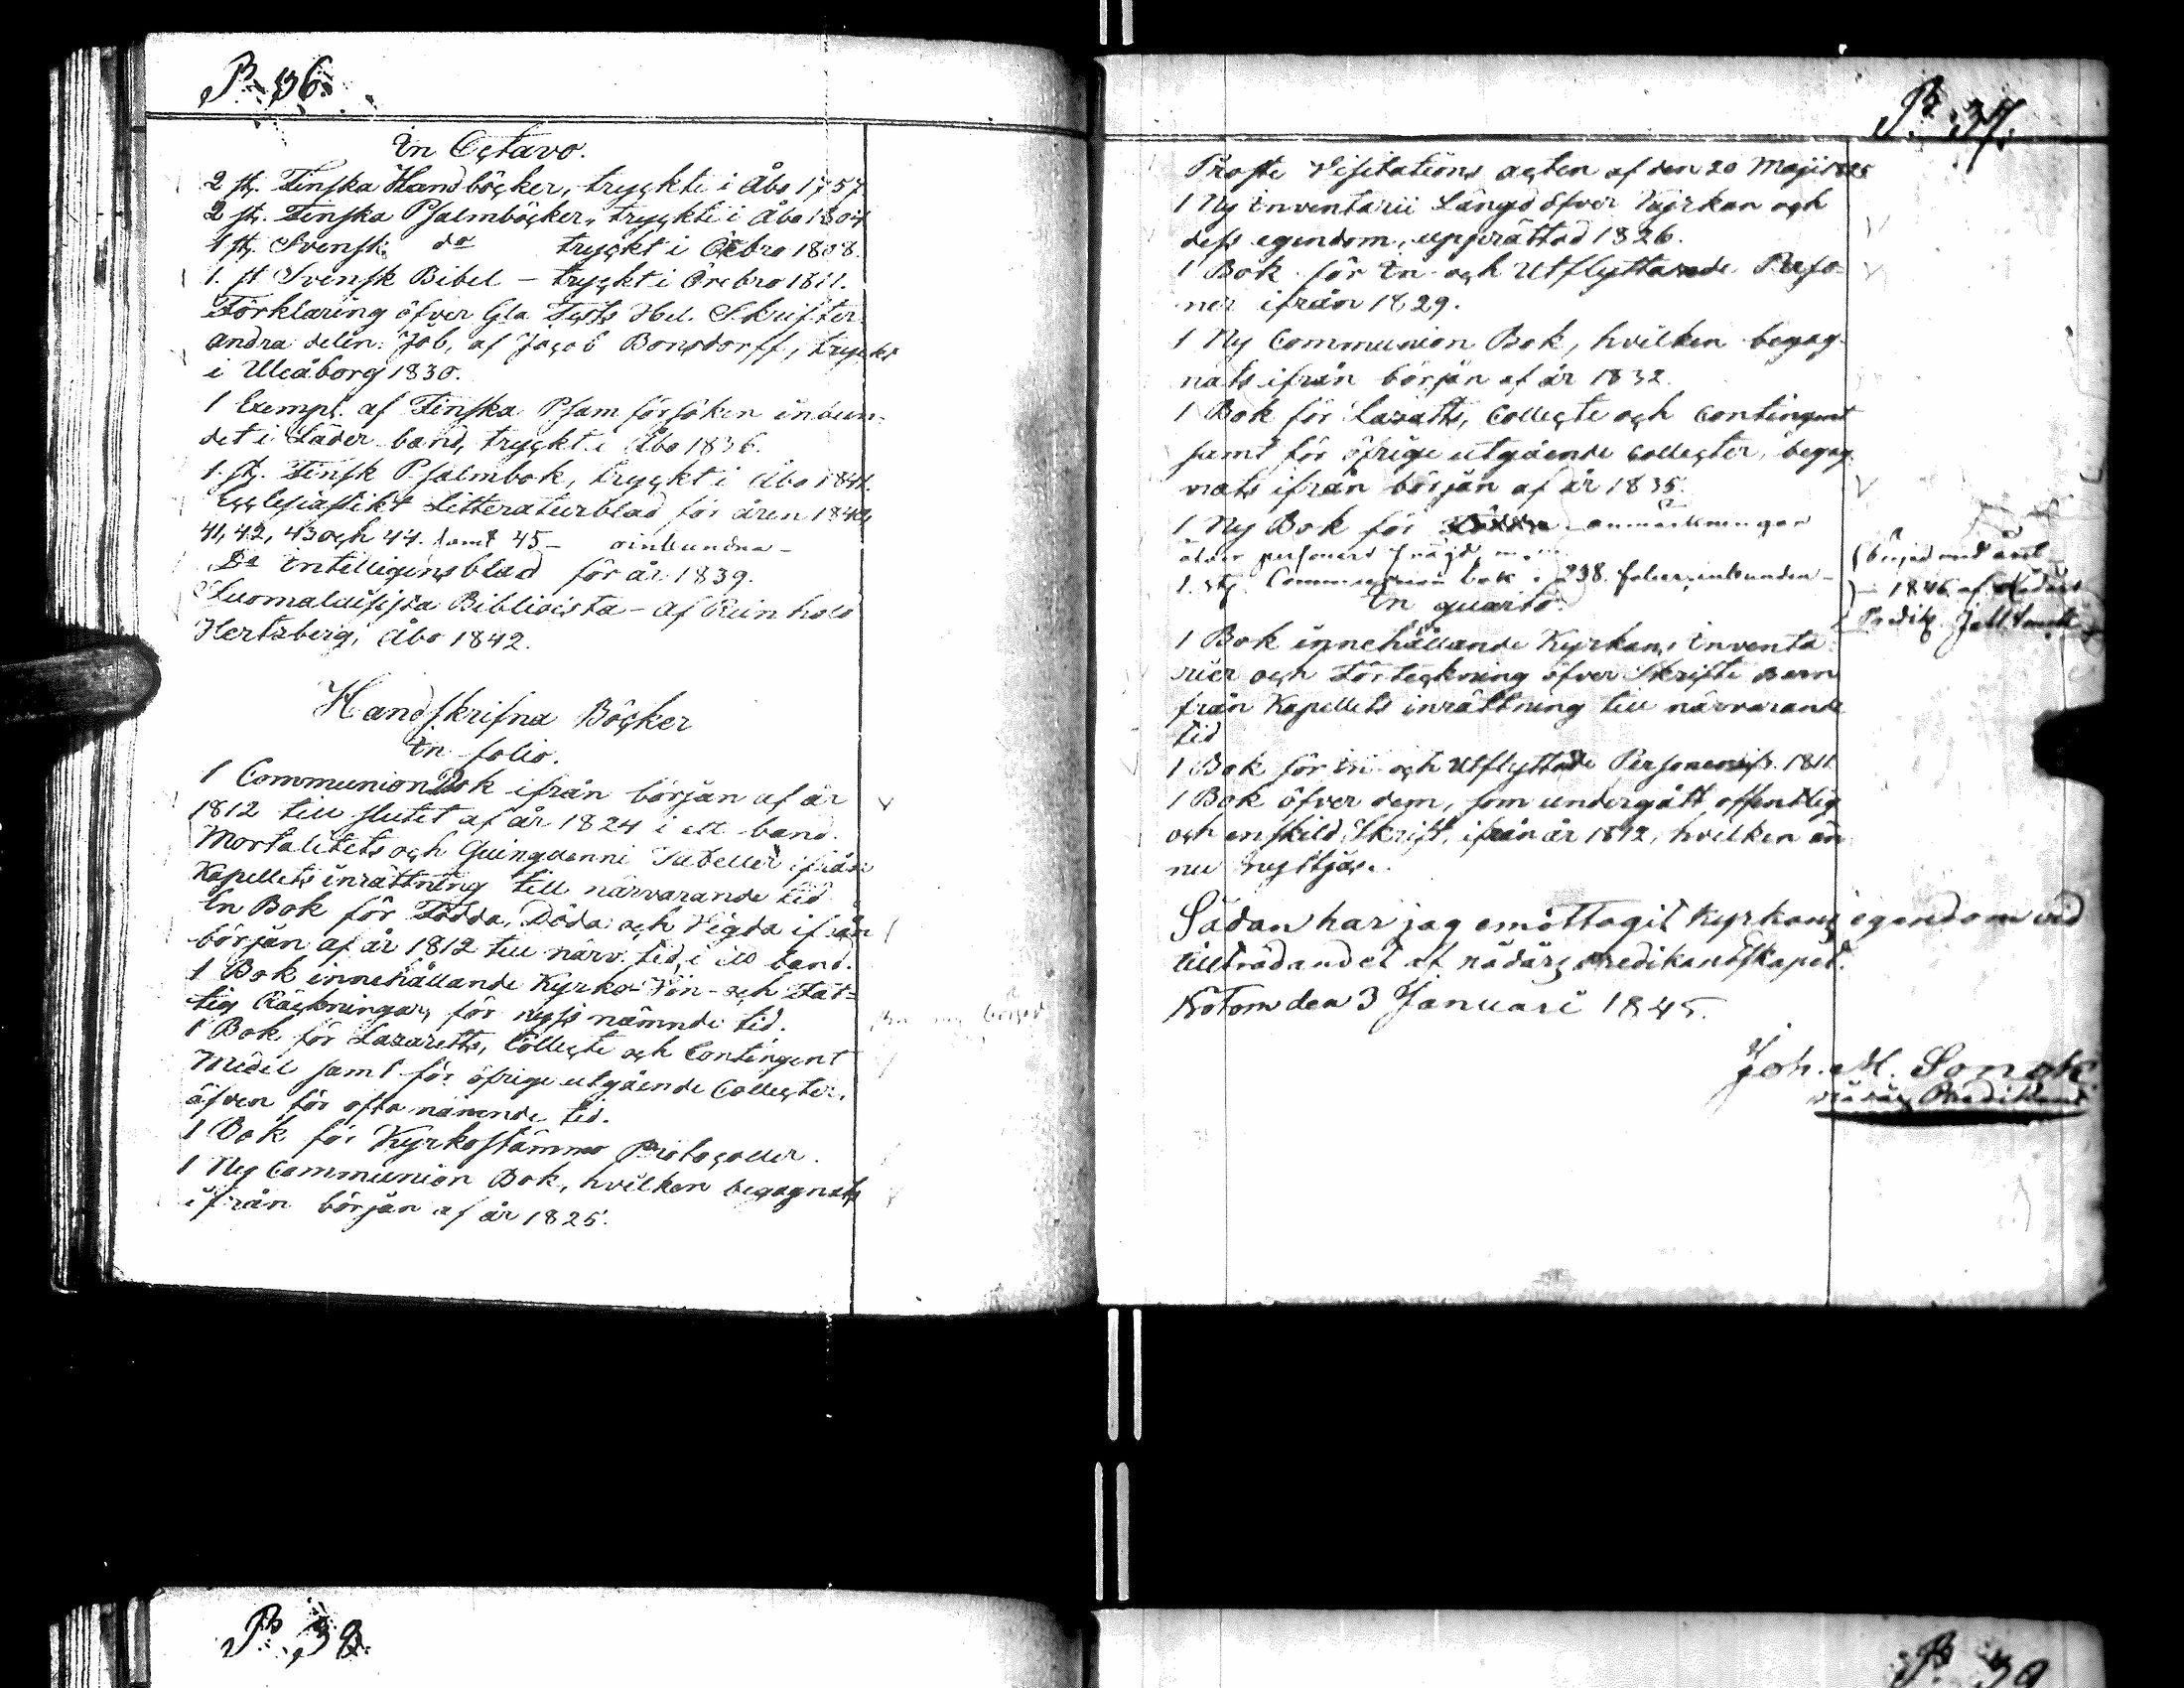 P. 36.
In Octavo.
2 st. Finska Handböcker, tryckte i Åbo 1757
2 st. Finska Psalmböcker, tryckte i Åbo 1804
1 st. Svensk do tryckt i Örebro 1808.
1. st Svensk Bibel – tryckt i Örebro 1811.
Förklaring öfver Gla Test: Hel. Skrifter
andra delen: Job, af Jacob Bonsdorff, tryckt
i Uleåborg 1830.
1 Exempl. af Finska Psam försöken inbun-
det i Läder band, tryckt i Åbo 1836.
1. st. Finsk Psalmbok, tryckt i Åbo 1841.
Ecclesiastikt Litteraturblad för åren 1840,
41, 42, 43 och 44. samt 45 – oinbundna –
Do Intelligensblad för år 1839.
Suomalaisista Biblioista – af Reinhold
Hertzberg, Åbo 1842.
Handskrifna Böcker
In folio.
1 Communion Bok ifrån början af år
1812 till slutet af år 1824 i ett band.
Mortalitets och Quinquenni Tabeller ifrån
Kapellets inrättning till närvarande tid
En Bok för Födda, Döda och Vigda ifrån
början af år 1812 till närv. tid, i ett band.
1 Bok innehållande Kyrko- Vin- och Fat-
tig Räckningar, för nyss nämnde tid.
1 Bok för Lazaretts, Collecte och Contingent
Medel samt för öfrige utgående Collecter,
äfven för ofta nämnde tid.
1 Bok för Kyrkostämmo Protocoller.
1 Ny Communion Bok, hvilken begagnats
ifrån början af år 1825.
P. 37.
Proste Visitations acten af den 20 Maji 1825
1 Ny Inventarii Längd öfver Kyrkan och
dess egendom, upprättad 1826.
1 Bok för In- och Utflyttande Perso-
ner ifrån 1829.
1 Ny Communion Bok, hvilken begag-
nats ifrån början af år 1832.
1 Bok för Lazatts, Collecte och Contingent
samt för öfrige utgående Collecter, begag-
nats ifrån början af år 1835.
1 Ny Bok för anmärkningar
1. st. Communion bok 238. folier, inbunden –
började med året
– 1846 af Nådårs
Predik.
In quarto.
1 Bok innehållande Kyrkans Inventa-
rier och Förteckning öfver Skrifte Barn
från Kapellets inrättning till närvarande
tid
1 Bok för In- och Utflyttade Personer ifr. 1811.
1 Bok öfver dem, som undergått offentlig
och enskild Skrift, ifrån år 1812, hvilken än-
nu nyttjas.
Sådan har jag emottagit Kyrkans egendom vid
tillträdandet af nådårs Predikantskapet.
den 3 Januari 1845.
Joh. M.
nådårs Predikant
P. 38.
P. 39